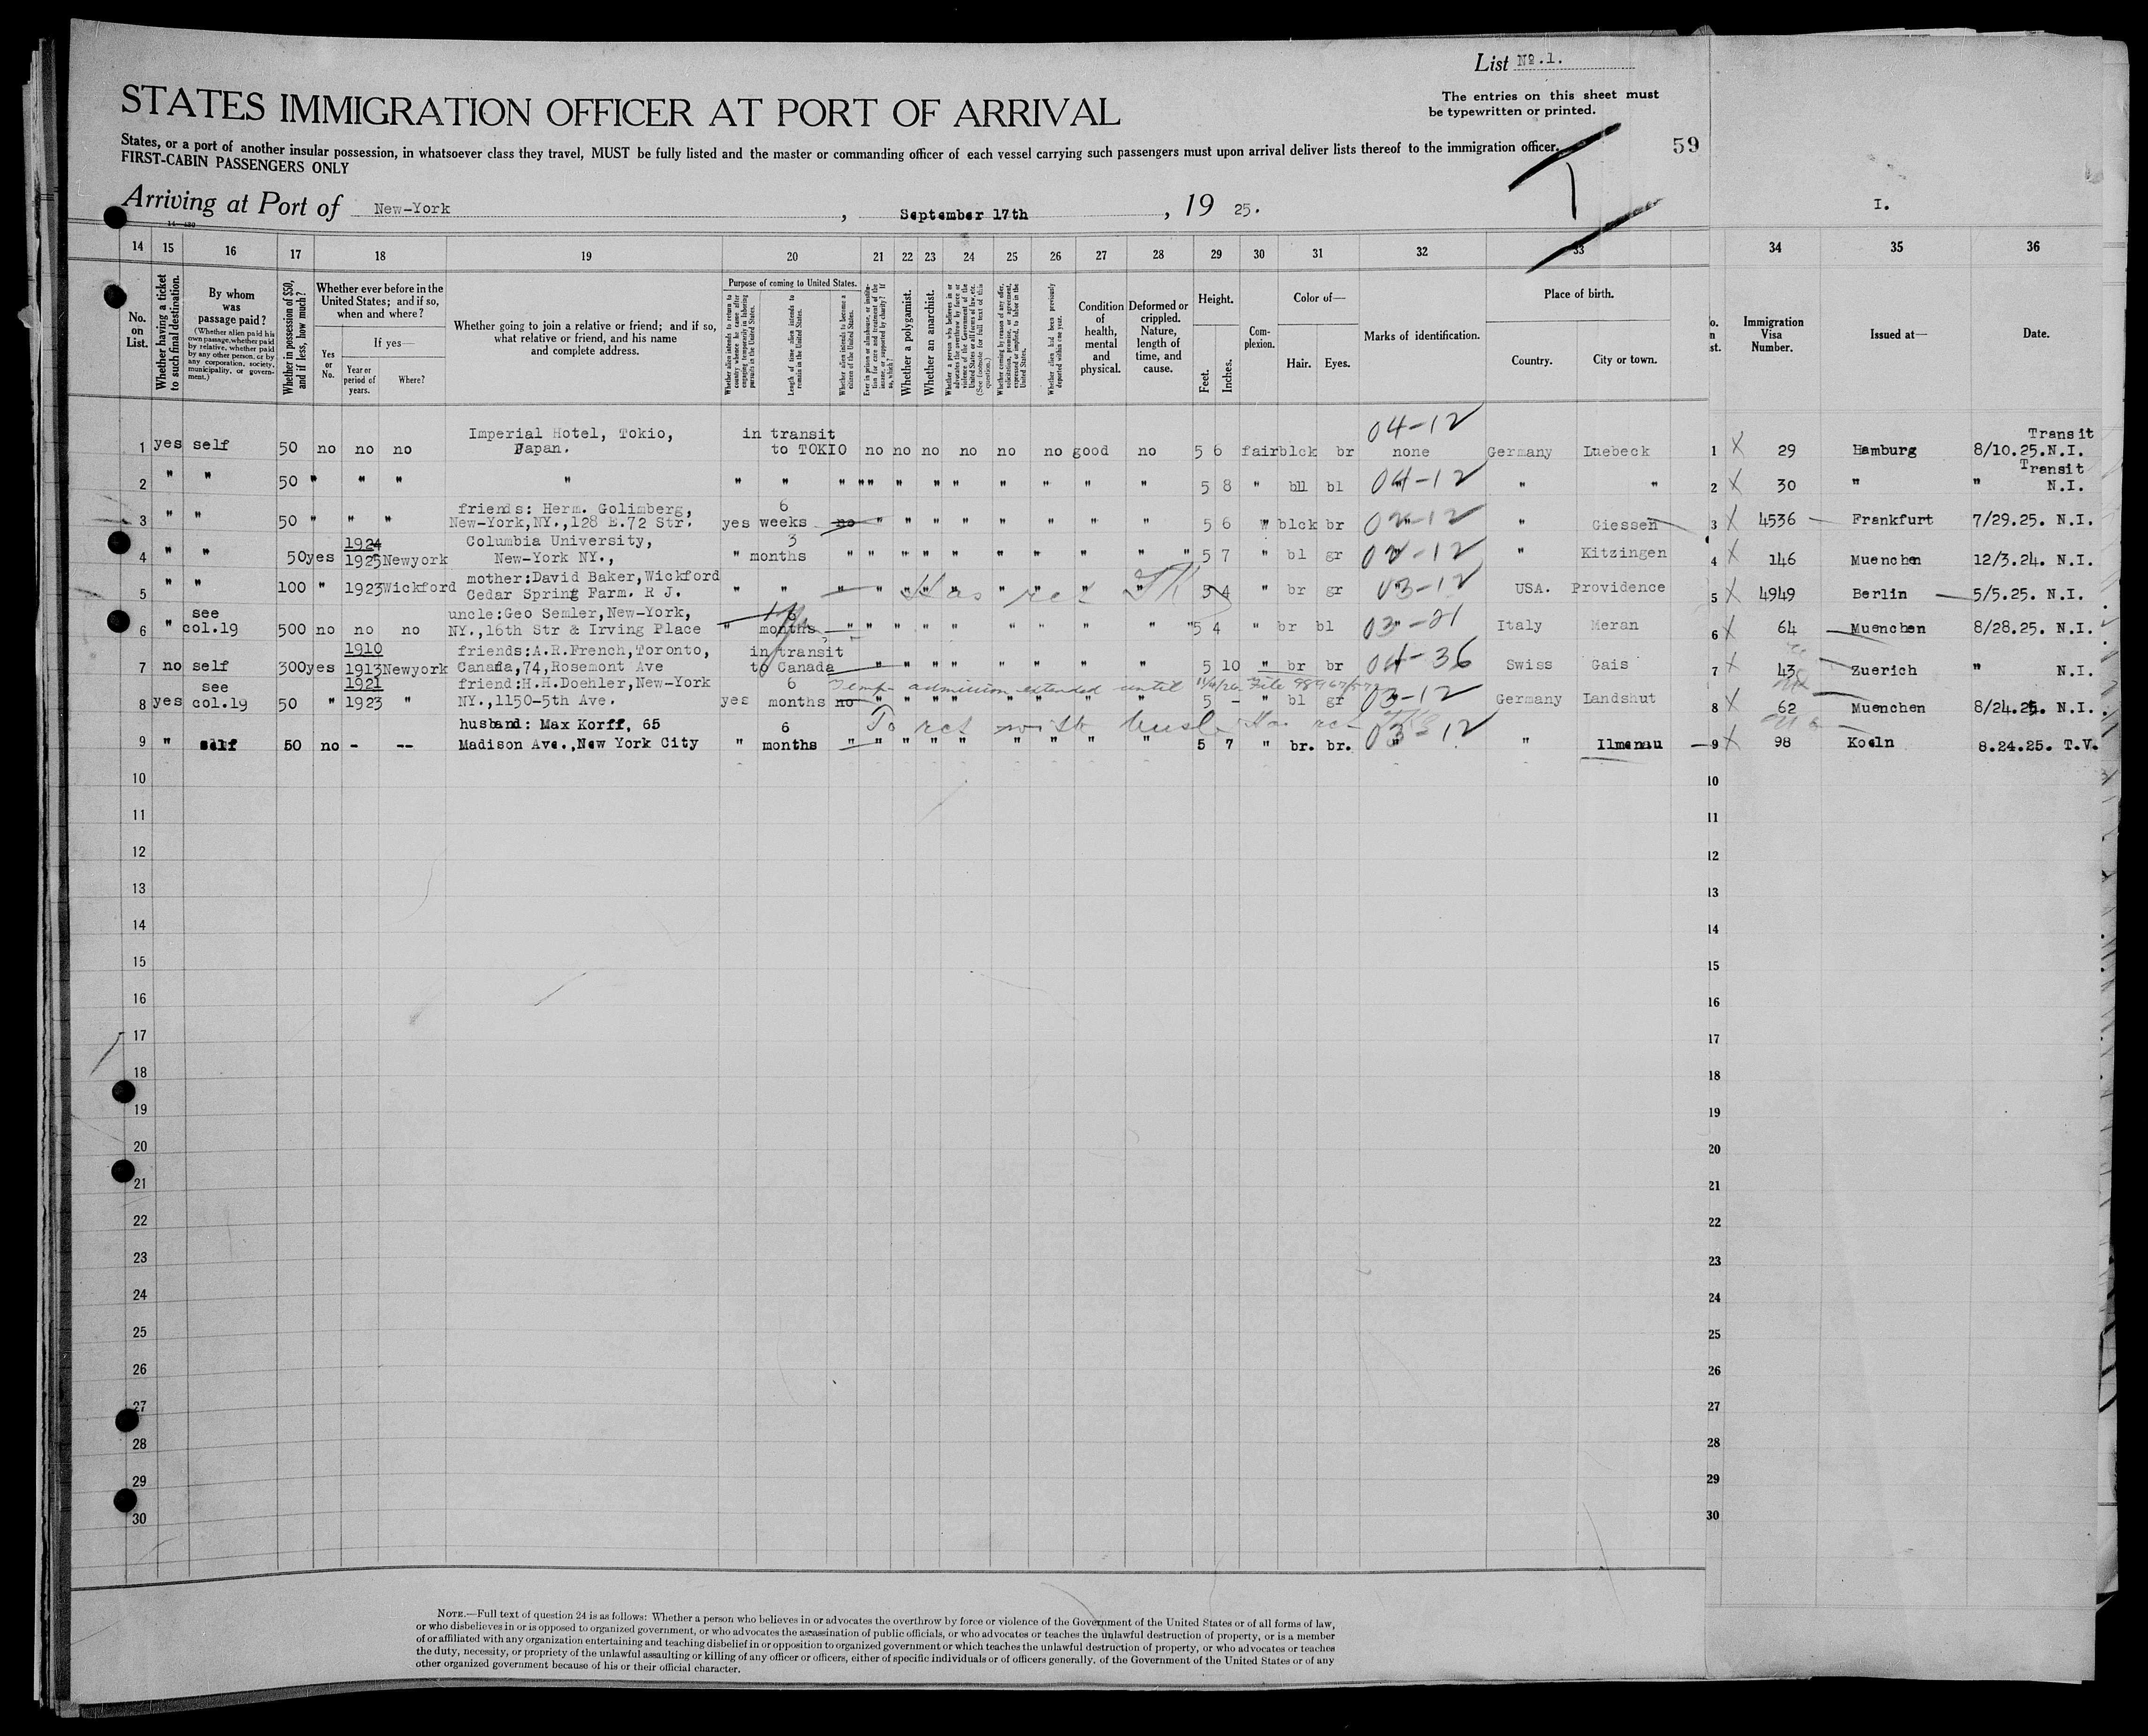 List No.1.
The entries on this sheet must
be typewritten or printed.
STATES IMMIGRATION OFFICER AT PORT OF ARRIVAL
59
States, or a port of another insular possession, in whatsoever class they travel, MUST be fully listed and the master or commanding officer of each vessel carrying such passengers must upon arrival deliver lists thereof to the immigration officer.
FIRST-CABIN PASSENGERS ONLY
Arriving at Port of New-York, September 17th, 1925.
I.
14 15 16 17 18 19 20 21 22 23 24 25 26 27 28 29 30 31 32 33 34 35 36
No. on List.
Whether having a ticket to such final destination.
By whom was passage paid?
(Whether alien paid his own passage, whether paid by relative, whether paid by any other person, or by any corporation, society, municipality, or government.)
Whether in possession of $50, and if less, how much?
Whether ever before in the United States; and if so, when and where?
Yes or No.
If yes—
Year or period of years.
Where?
Whether going to join a relative or friend; and if so, what relative or friend, and his name and complete address.
Purpose of coming to United States.
Whether alien intends to return to country whence he came after engaging temporarily in laboring pursuits in the United States.
Length of time alien intends to remain in the United States.
Whether alien intends to become a citizen of the United States.
Ever in prison or almshouse, or institution for care and treatment of the insane, or supported by charity? If so, which?
Whether a polygamist.
Whether an anarchist.
Whether coming by reason of any offer, solicitation, promise, or agreement, expressed or implied, to labor in the United States.
Whether alien had been previously deported within one year.
Condition of health, mental and physical.
Deformed or crippled. Nature, length of time, and cause.
Height.
Feet.
Inches.
Complexion.
Color of—
Hair.
Eyes.
Marks of identification.
Place of birth.
Country.
City or town.
Immigration Visa Number.
Issued at—
Date.
1 yes self 50 no no no Imperial Hotel, Tokio, Japan. in transit to TOKIO no no no no no no good no 5 6 fair blck br 04-12 none Germany Luebeck 1 X 29 Hamburg Transit 8/10.25.N.I.
2 " " 50 " " " " " " " " " " " " " " " " 5 8 " bll bl 04-12 " " 2 X 30 " Transit " N.I.
3 " " 50 " " " friends: Herm. Golimberg, New-York,NY.,128 E.72 Str. yes 6 weeks no " " " " " " " " 5 6 " blck br " Giessen 3 X 4536 Frankfurt 7/29.25. N.I.
4 " " 50 yes 1924 1925 Newyork Columbia University, New-York NY., " 3 months " " " " " " " " " " 5 7 " bl gr " Kitzingen 4 X 146 Muenchen 12/3.24. N.I.
5 " " 100 " 1923 Wickford mother:David Baker,Wickford Cedar Spring Farm. R J. " " " " " " " " " " " 5 4 " br gr 03-12 USA. Providence 5 X 4949 Berlin 5/5.25. N.I.
6 " see col.19 500 no no no uncle:Geo Semler,New-York, NY.,16th Str & Irving Place " 6 months " " " " " " " " " " 5 4 " br bl 03-21 Italy Meran 6 X 64 Muenchen 8/28.25. N.I.
7 no self 300 yes 1910 1913 Newyork friends:A.R.French,Toronto, Canada,74,Rosemont Ave in transit to Canada " " " " " " " " 5 10 " br br 04-36 Swiss Gais 7 X 43 Zuerich " N.I.
Temp admission extended until
8 yes see col.19 50 " 1921 1923 " friend:H.H.Doehler,New-York NY.,1150-5th Ave. yes 6 months no " " " " " " " " 5 - " bl gr 03-12 Germany Landshut 8 X 62 Muenchen 8/24.25. N.I.
To ret with husb.
9 " self 50 no - -- husband: Max Korff, 65 Madison Ave.,New York City " 6 months " " " " " " " " " 5 7 " br. br. 03-12 " Ilmenau 9 X 98 Koeln 8.24.25. T.V.
10 10
11 11
12 12
13 13
14 14
15 15
16 16
17 17
18 18
19 19
20 20
21 21
22 22
23 23
24 24
25 25
26 26
27 27
28 28
29 29
30 30
NOTE.—Full text of question 24 is as follows: Whether a person who believes in or advocates the overthrow by force or violence of the Government of the United States or of all forms of law,
or who disbelieves in or is opposed to organized government, or who advocates the assassination of public officials, or who advocates or teaches the unlawful destruction of property, or is a member
of or affiliated with any organization entertaining and teaching disbelief in or opposition to organized government or which teaches the unlawful destruction of property, or who advocates or teaches
the duty, necessity, or propriety of the unlawful assaulting or killing of any officer or officers, either of specific individuals or of officers generally, of the Government of the United States or of any
other organized government because of his or their official character.